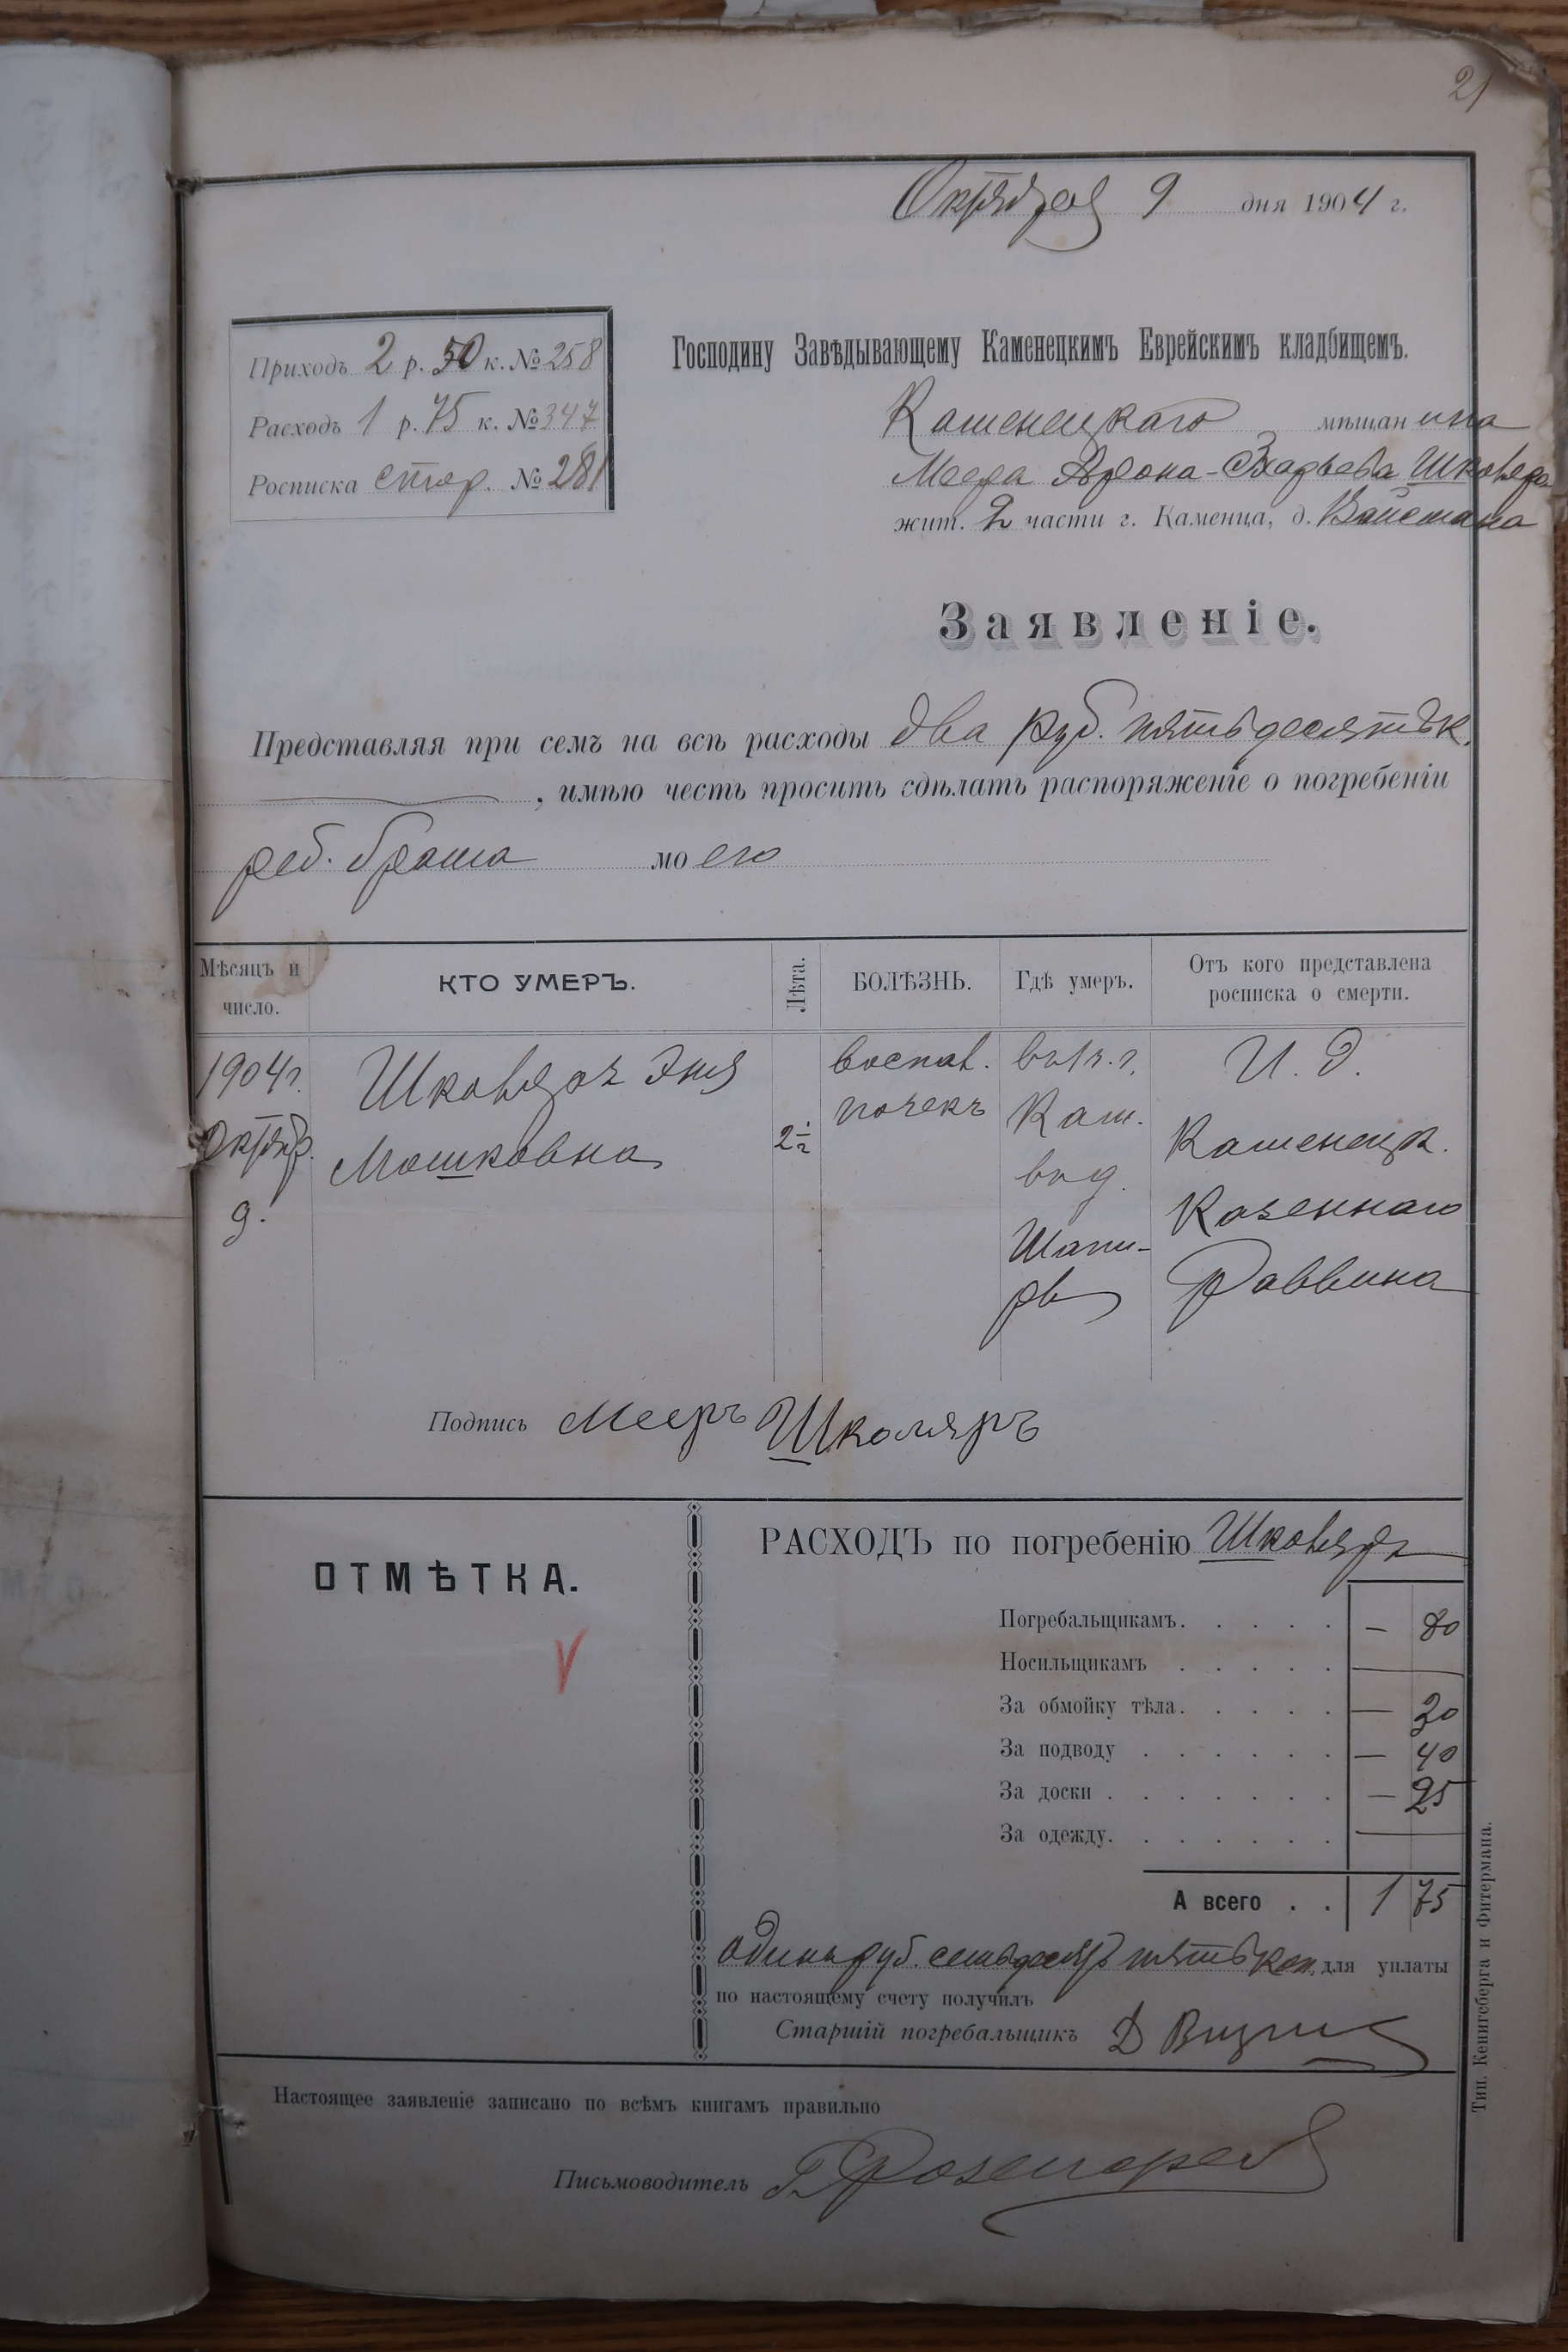 21
Октября 9 дня 1904 г.
Приходъ 2 р. 50 к. № 258
Расходъ 1 р. 75 к. № 347
Росписка стар. № 281
Господину Завѣдывающему Каменецкимъ Еврейскимъ кладбищемъ.
Каменецкаго мѣщанина
Меера Арона-Эхадьева Школяра
жит. 2 части г. Каменца, д. Вайсмана
Заявленіе.
Представляя при семъ на всѣ расходы два руб. пятьдесятъ к.
, имѣю честь просить сдѣлать распоряженіе о погребеніи
реб. брата моего
Мѣсяцъ и число.
КТО УМЕРЪ.
Лѣта.
БОЛѢЗНЬ.
Гдѣ умеръ.
Отъ кого представлена росписка о смерти.
1904 г.
Октяр.
9.
Школяръ Эня
Мошковна
2 1/2
воспал.
почекъ
въ 1 ч. г.
Кам.
въ д.
Шапи-
ры
И. д.
Каменецк.
Казеннаго
Раввина
Подпись Мееръ Школяръ
ОТМѢТКА.
V
РАСХОДЪ по погребенію Школяръ
Погребальщикамъ. . . . . — 80
Носильщикамъ . . . . . —
За обмойку тѣла. . . . . — 30
За подводу . . . . . . — 40
За доски . . . . . . . — 25
За одежду. . . . . . . —
А всего . . 1 75
одинъ руб. семьдесятъ пять коп. для уплаты
по настоящему счету получилъ
Старшій погребальщикъ Д
Настоящее заявленіе записано по всѣмъ книгамъ правильно
Письмоводитель
Тип. Кенигсберга и Фитермана.